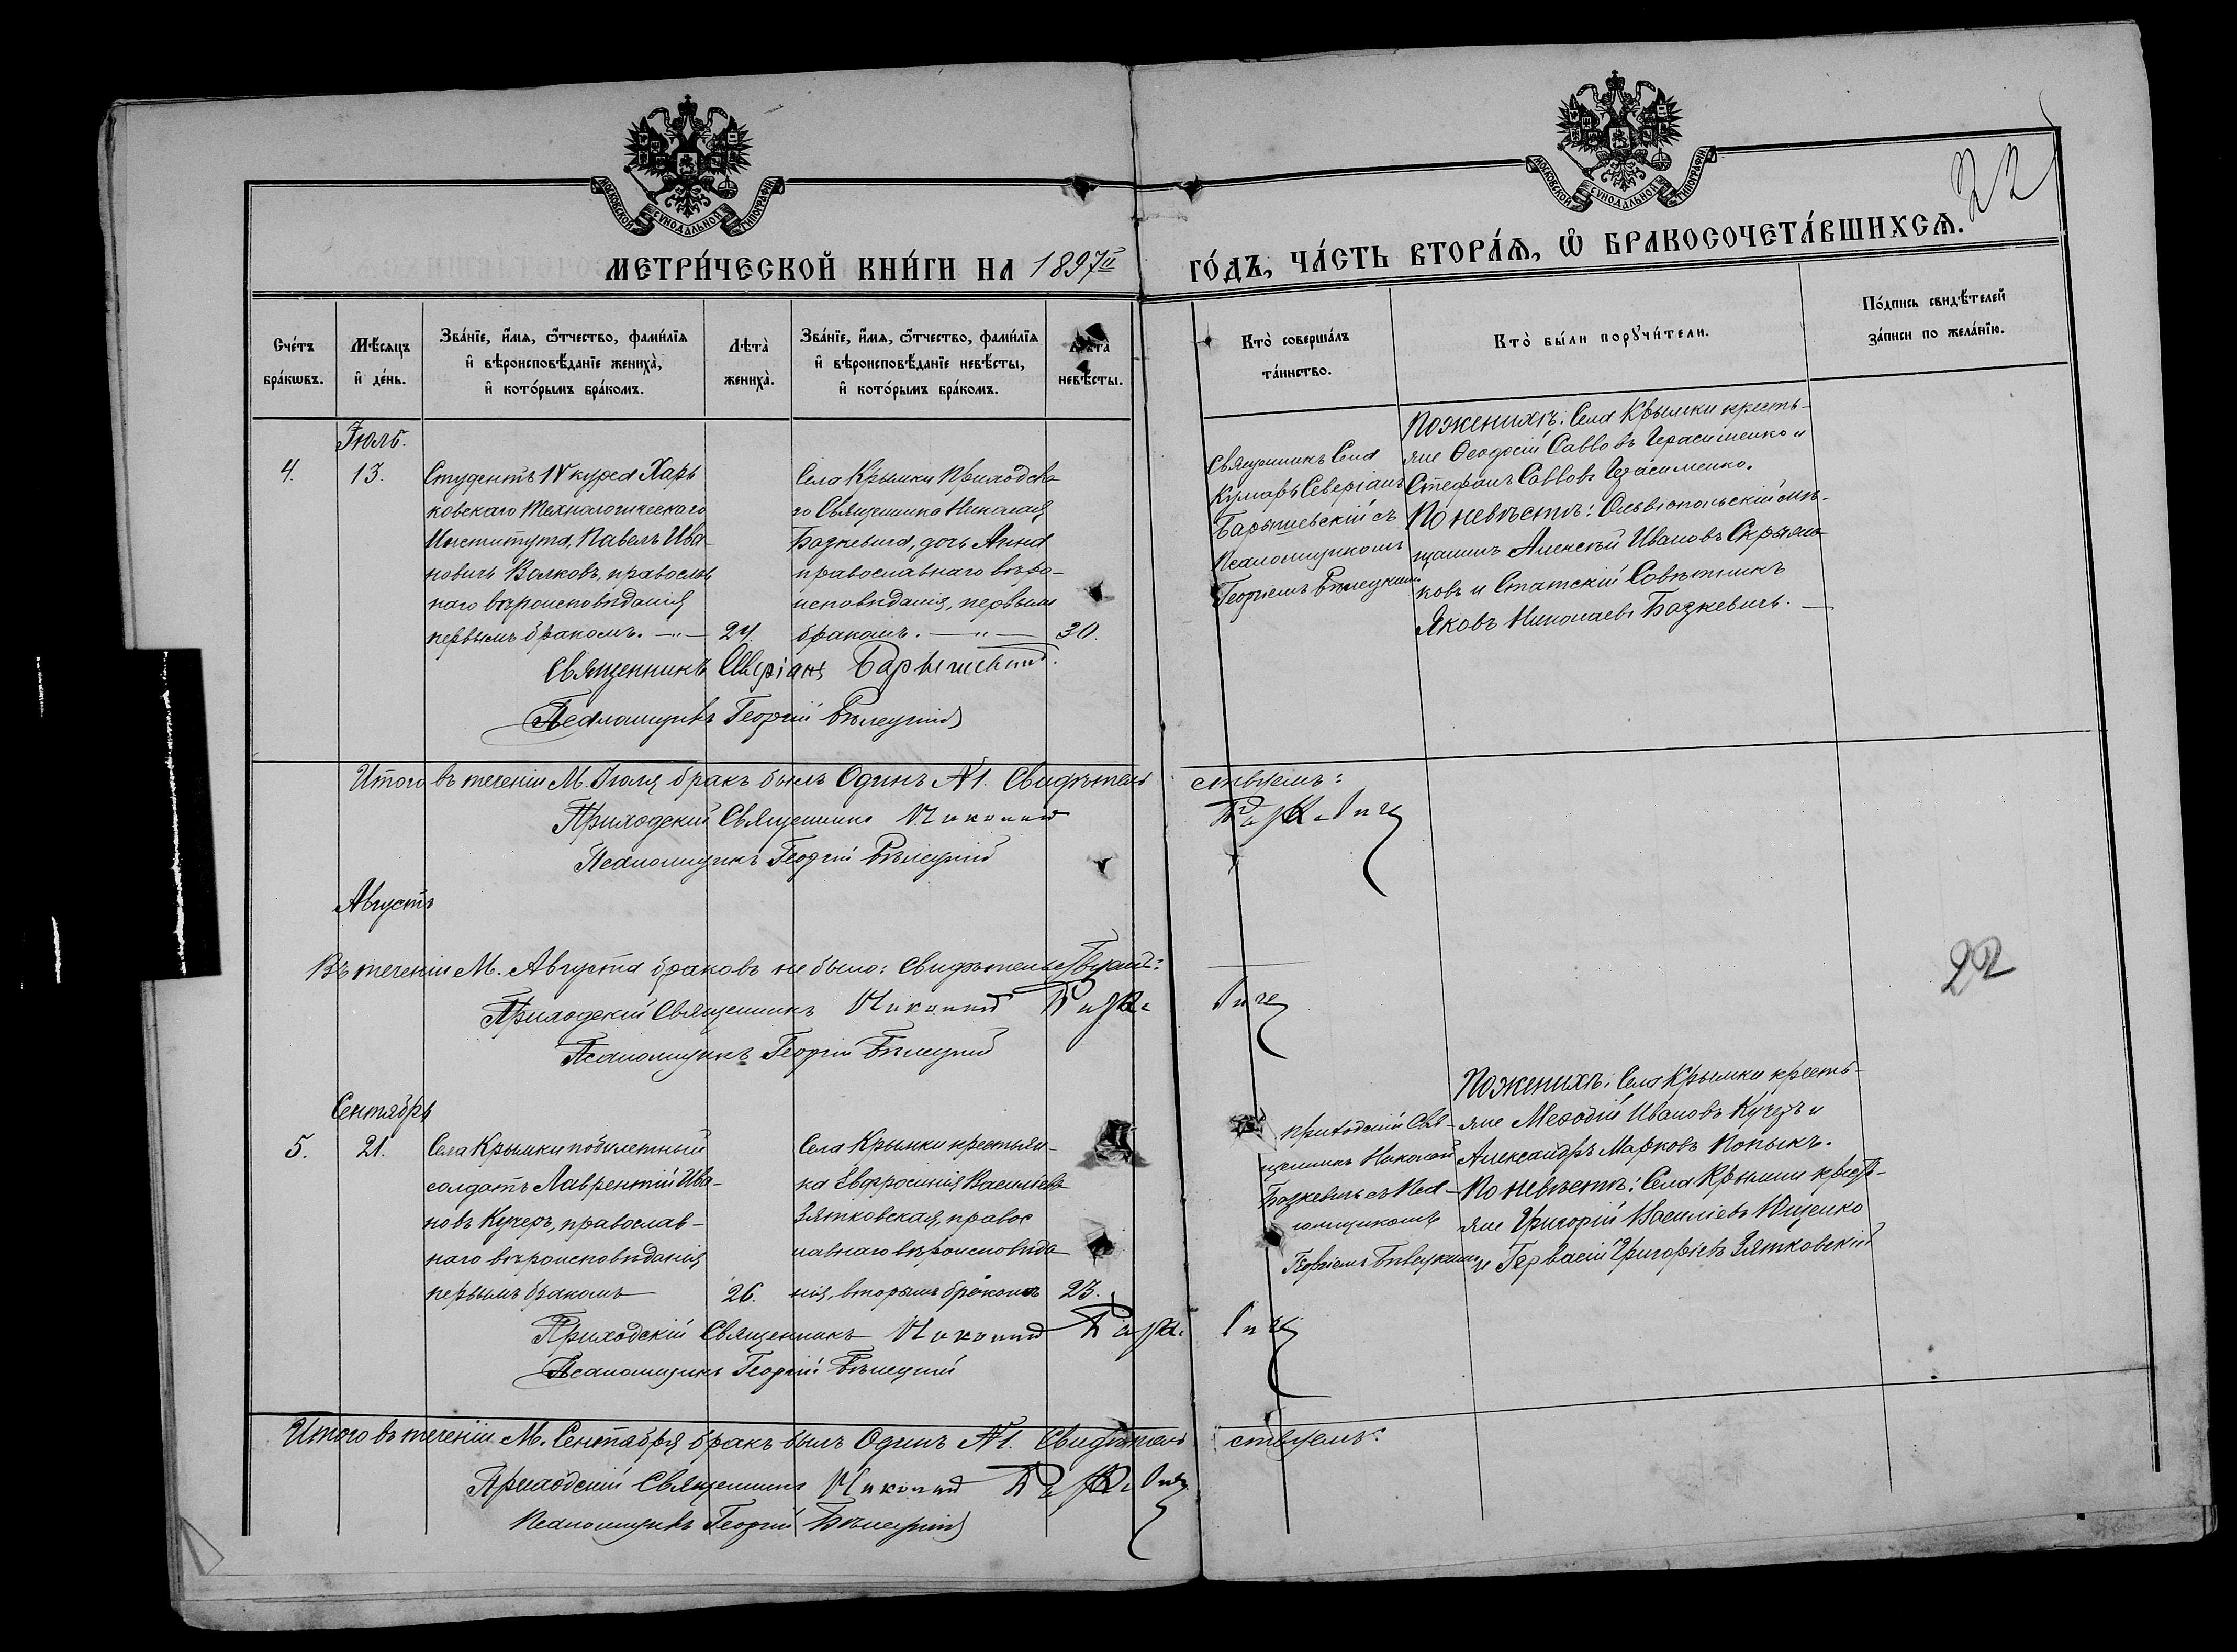 МОСКОВСКОЙ СѴНОДАЛЬНОЙ ТИПОГРАФІИ
МОСКОВСКОЙ СѴНОДАЛЬНОЙ ТИПОГРАФІИ
22
МЕТРИ́ЧЕСКОЙ КНИ́ГИ НА 1897й
ГО́ДЪ, ЧА́СТЬ ВТОРА́Я, Ѡ БРАКОСОЧЕТА́ВШИХСѦ.
Сче́тъ
бра́кѡвъ.
Мѣ́сяцъ
и де́нь.
Зва́нїе, и́мя, ѻ́тчество, фами́лїя
и вѣроисповѣ́данїе жениха̀,
и кото́рымъ бра́комъ.
Лѣта̀
жениха̀.
Зва́нїе, и́мя, ѻ́тчество, фами́лїя
и вѣроисповѣ́данїе невѣ́сты,
и кото́рымъ бра́комъ.
Лѣта̀
невѣ́сты.
Кто̀ соверша́лъ
та́инство.
Кто̀ бы́ли порꙋчи́тели.
По́дпись свидѣ́телей
за́писи по жела́нїю.
Іюль.
4.
13.
Студентъ IV курса Харь
ковскаго Технологическаго
Института, Павелъ Ива-
новичъ Волковъ, православ
наго вѣроисповѣданія
первымъ бракомъ. —"—
24.
Села Крымки Приходска
го Священника Николая
Базкевича, дочь Анна
православнаго вѣро-
исповѣданія, первымъ
бракомъ. —"—
30.
Священникъ Села
Кумаръ Северіанъ
Барышевскій съ
Псаломщикомъ
Георгіемъ Бѣлецкимъ
По женихѣ: Села Крымки кресть-
яне Ѳеодосій Саввовъ Герасименко и
Стефанъ Саввовъ Герасименко.
По невѣстѣ: Ольвіопольскій мѣ-
щанинъ Алексѣй Ивановъ
ковъ и Статскій Совѣтникъ
Яковъ Николаевъ Базкевичъ. —
Священникъ Северіанъ Барышевскій.
Псаломщикъ Георгій Бѣлецкій
Итого въ теченіи М. Іюля бракъ былъ Одинъ №1. Свидѣтель
ствуемъ:
Приходскій Священникъ Николай Базкевичъ
Псаломщикъ Георгій Бѣлецкій
Августъ
Въ теченіи М. Августа браковъ не было: свидѣтельствуемъ:
Приходскій Священникъ Николай Базкевичъ
Псаломщикъ Георгій Бѣлецкій
22
Сентябрь
5.
21.
Села Крымки побилетный
солдатъ Лаврентій Ива-
новъ Кучеръ, православ-
наго вѣроисповѣданія
первымъ бракомъ
26.
Села Крымки крестьян-
ка Евфросинія Васильева
Зятковская, правос
лавнаго вѣроисповѣда
нія, вторымъ бракомъ
23.
Приходскій Свя-
щенникъ Николай
Базкевичъ съ Пса-
ломщикомъ
Георгіемъ Бѣлецкимъ
По женихѣ: Села Крымки кресть-
яне Меѳодій Ивановъ Кучеръ и
Александръ Марковъ Попыкъ.
По невѣстѣ: Села Крымки крест-
яне Григорій Василіевъ Ищенко
и Гервасій Григорьевъ Зятковскій
Приходскій Священникъ Николай Базкевичъ
Псаломщикъ Георгій Бѣлецкій
Итого въ теченіи М. Сентября бракъ былъ Одинъ №1. Свидѣтель
ствуемъ:
Приходскій Священникъ Николай Базкевичъ
Псаломщикъ Георгій Бѣлецкій